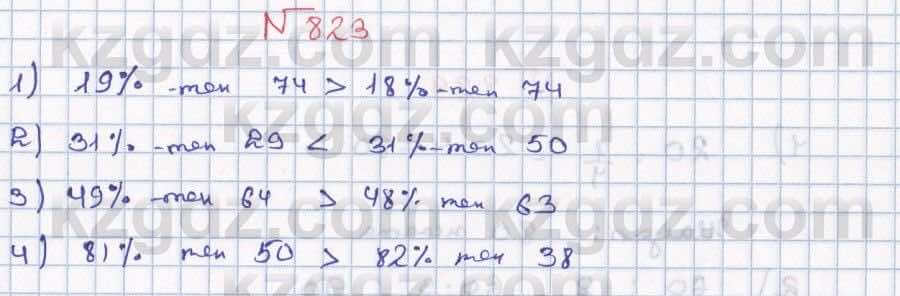 №823
1) 19% -мен 74 > 18%-мен 74
2) 31% -мен 29 < 31%-мен 50
3) 49% -мен 64 > 48% мен 63
4) 81% мен 50 > 82% мен 38
kzgdz.com